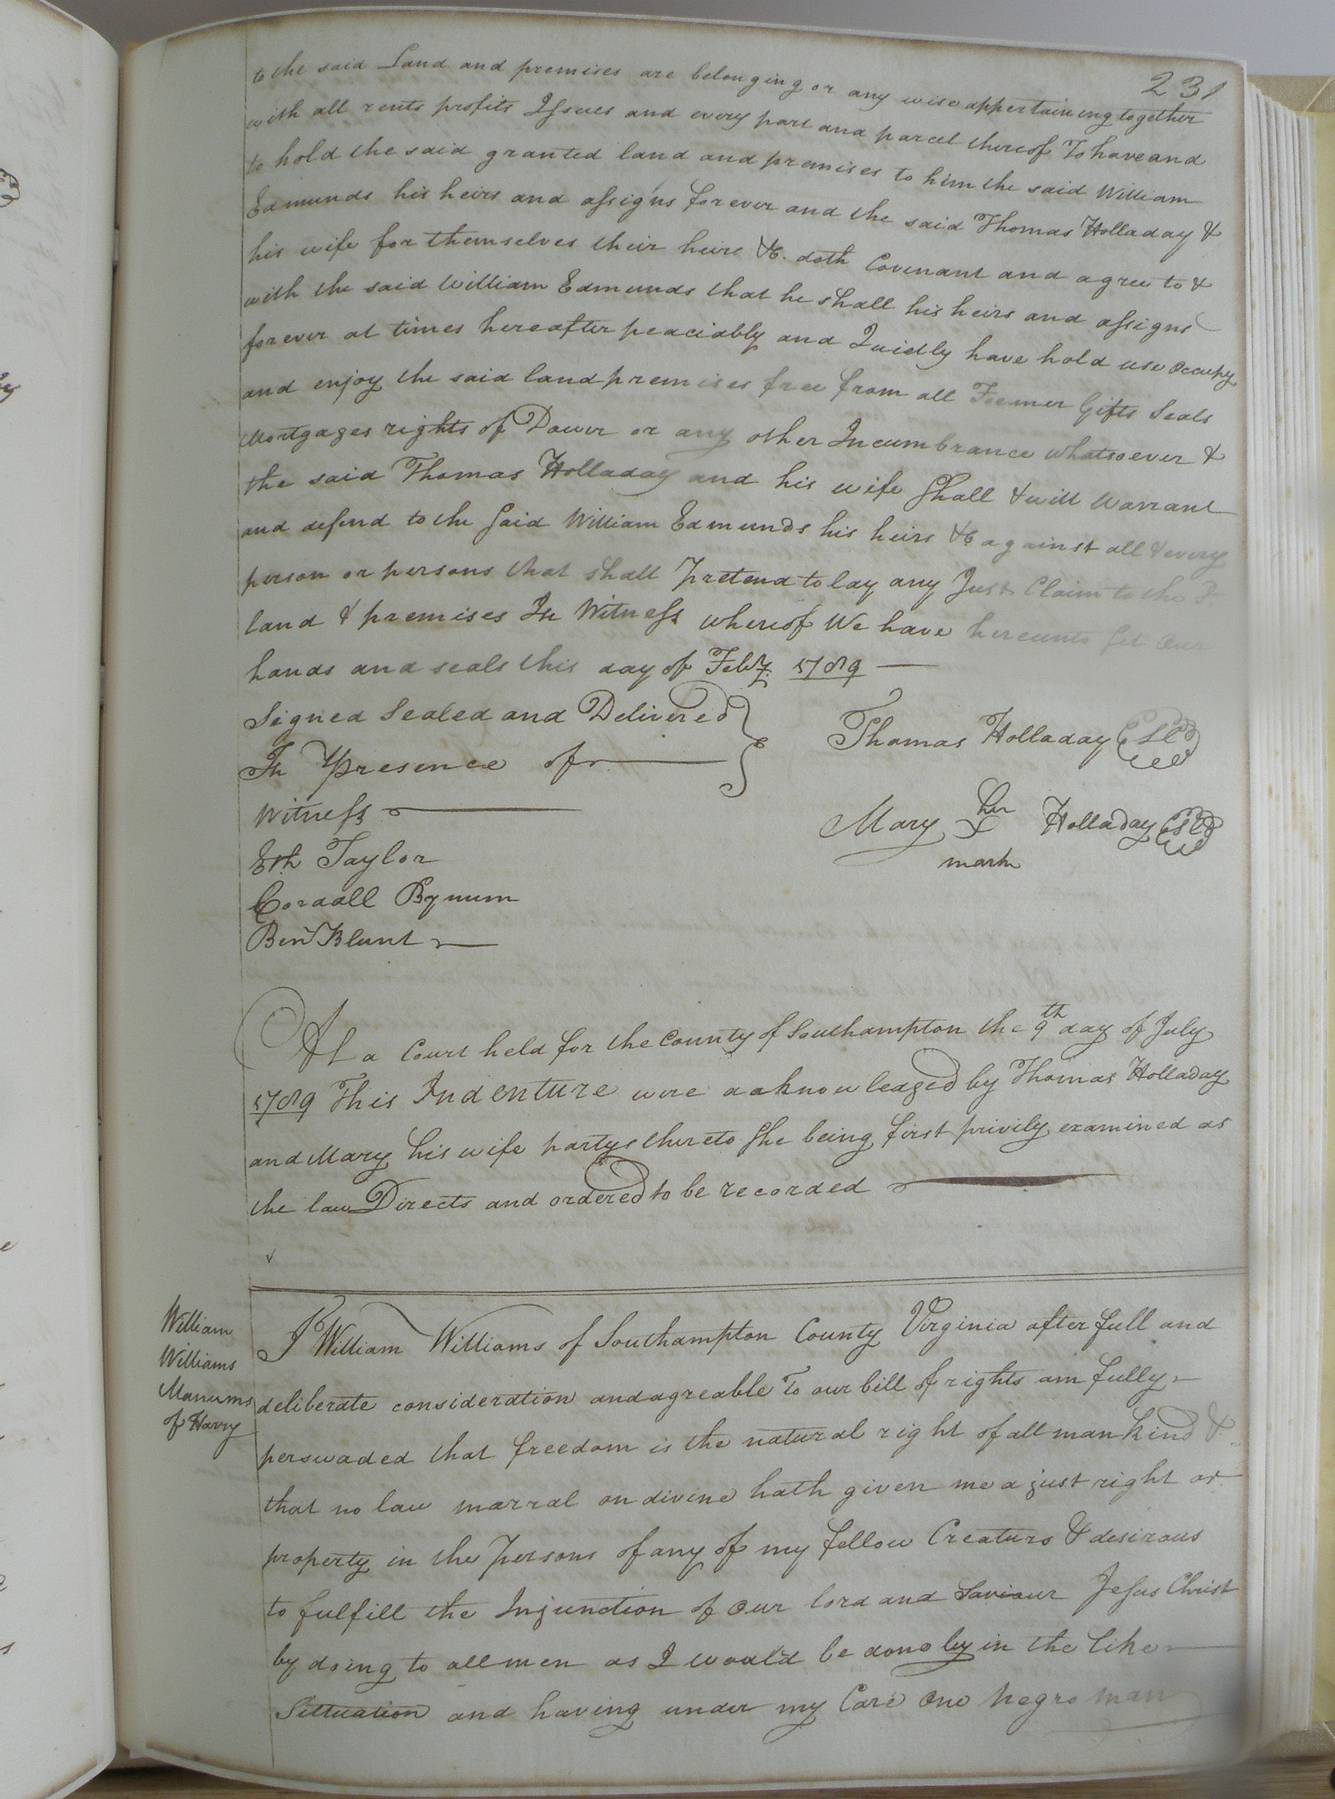 231
to the said Land and premises are belonging or any wise appertaining together
with all rents profits Issues and every part and parcel thereof To have and
to hold the said granted land and premises to him the said William
Edmunds his heirs and assigns forever and the said Thomas Holladay &
his wife for themselves their heirs &c. doth Covenant and agree to &
with the said William Edmunds that he shall his heirs and assigns
forever at times hereafter peaciably and Quietly have hold use occupy
and enjoy the said land premises free from all Former Gifts Seals
Mortgages rights of Dower or any other Incumbrance whatsoever &
the said Thomas Holladay and his wife shall & will warrant
and defend to the said William Edmunds his heirs &c against all & every
person or persons that shall pretend to lay any Just Claim to the
land & premises In Witness whereof We have hereunto set our
hands and seals this day of Feby. 1789
Signed Sealed and Delivered
In Presence of
Witness
Eth Taylor
Cordall Bynum
Benj Blunt
Thomas Holladay (LS)
her
Mary X Holladay (LS)
mark
At a Court held for the County of Southampton the 9th day of July
1789 This Indenture were acknowledged by Thomas Holladay
and Mary his wife partys thereto she being first privily examined as
the law Directs and ordered to be recorded
William
Williams
Manums
of Harry
I William Williams of Southampton County Virginia after full and
deliberate consideration and agreable To our bill of rights am fully
perswaded that freedom is the natural right of all mankind &
that no law marral or divine hath given me a just right or
property in the Persons of any of my fellow Creaturs & desirous
to fulfill the Injunction of our lord and Saviour Jesus Christ
by doing to all men as I would be done by in the like
Sittuation and having under my Care one Negro man